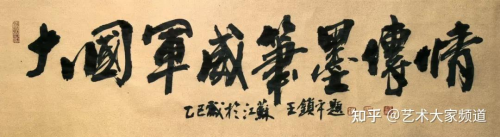 大國軍威筆墨傳情
乙巳歲於江蘇 王鎖平題
知乎 @艺术大家频道